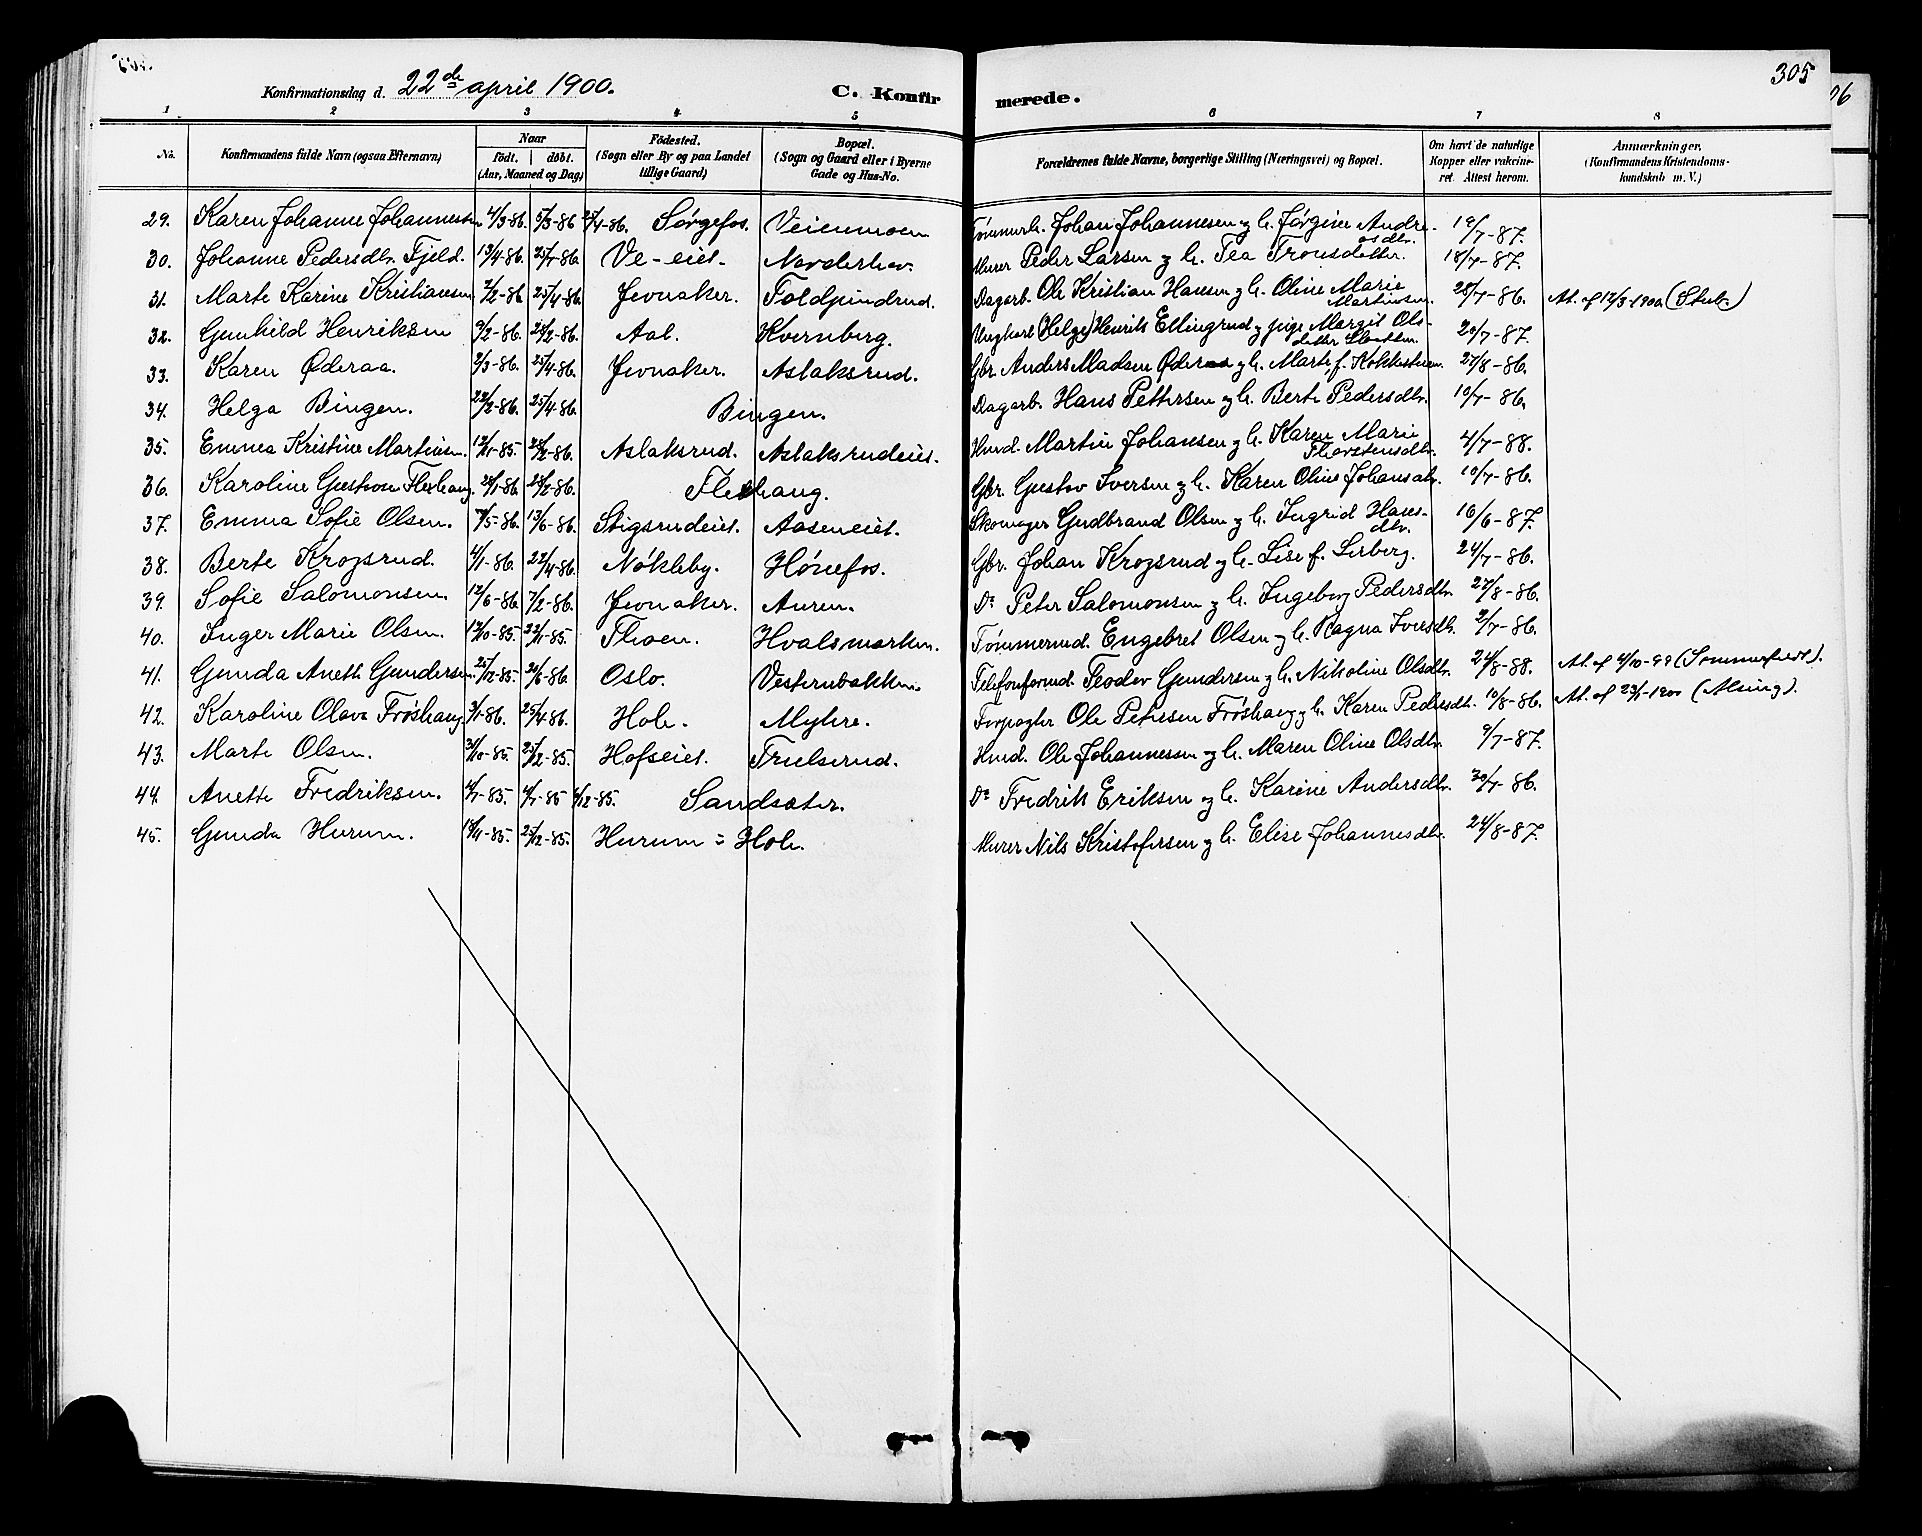 305
Konfirmationsdag d. 22de april 1900. C. Konfirmerede.
1 2 3 4 5 6 7 8
No. Konfirmandens fulde Navn (ogsaa Efternavn) Naar födt. döbt. (Aar, Maaned og Dag) Födested. (Sogn eller By og paa Landet tillige Gaard) Bopæl. (Sogn og Gaard eller i Byerne Gade og Hus-No. Forældrenes fulde Navne, borgerlige Stilling (Næringsvei) og Bopæl. Om havt de naturlige Kopper eller vakcineret. Attest herom. Anmærkninger. (Konfirmandens Kristendomskundskab m. V.)
29. Karen Johanne Johannesen 4/3-86. 5/3-86 /4-86. Sørgefos. Veienmoen Johan Johannesen og h. Jørgine Andreasdtr. 19/7-87.
30. Johanne Pedersdtr. Fjeld. 13/4-86. 25/7-86. Ve-eiet. Norderhov. Murer Peder Larsen og h. Tea Tronsdatter. 18/7-87.
31. Marte Karine Kristiansen 7/2-86 25/4-86. Jevnaker. Foldpindrud. Dagarb. Ole Kristian Hansen og h. Oline Marie Martinsen. 28/7-86. At. af 12/3-1900 (Stub)
32. Gunhild Henriksen 9/2-86. 24/2-86. Aal. Kvernberg. Ungkarl (Helge) Henrik Ellingrud og pige Margit Olsdatter 20/7-87.
33. Karen Øderaa. 2/3-86. 25/4-86. Jevnaker. Aslaksrud. Gbr. Anders Madsen Øderaa og h. Marte, f. 27/8-86.
34. Helga Bingen. 22/2-86. 25/4-86. Bingen. Dagarb. Hans Pettersen og h. Berte Pedersdtr. 10/7-86.
35. Emma Kristine Martinsen. 12/11-85. 28/2-86. Aslaksrud. Aslaksrudeiet. Husmd. Martin Johansen og h. Karen Marie Thorstensdtr. 4/7-88.
36. Karoline Gustava Fleskaug. 28/1-86. 28/2-86. Fleskaug. Gbr. Gustav Iversen og h. Karen Oline Johansdtr. 10/7-86.
37. Emma Sofie Olsen. /5-86. 13/6-86. Stigsrudeiet. Aaseneiet. Skomager Gudbrand Olsen og h. Ingrid Hansdtr. 16/6-87.
38. Berte Krogsrud. 4/1-86. 22/4-86. Nøkleby. Hønefos. Gbr. Johan Krogsrud og h. Lise f. Lerberg. 24/7-86.
39. Sofie Salomonsen. 12/6-86. 7/2-86. Jevnaker. Auren. Do Peter Salomonsen og h. Ingeborg Pedersdtr. 27/8-86.
40. Inger Marie Olsen. 12/10-85. 22/11-85. Thoen. Hvalsmarken. Tømmermd. Engebret Olsen og h. Ragna Iversdtr. 2/7-86.
41. Gunda Anette Gundersen. 25/12-85. 20/6-86. Oslo. Vesternbakken. Telefonformd. Teodor Gundersen og h. Nikoline Olsdtr. 24/8-88. At. af 4/10-99 (Sommerfeldt).
42. Karoline Olava Frøshaug 3/1-86. 25/4-86. Hole. Myhre. Forpagter Ole Petersen Frøshaug og h. Karen Pedersdtr. 10/8-86. At. af 23/1-1900 (Alsing).
43. Marte Olsen. 31/10-85. 25/12-85. Hofseiet. Trulserud. Husmd. Ole Johannesen og h. Maren Oline Olsdtr. 9/7-87.
44. Anette Fredriksen. 4/7-85. 4/7-85 6/12-85. Sandsæter. Do Fredrik Eriksen og h. Karine Andersdtr. 30/7-86.
45. Gunda Hurum. 15/11-85. 25/12-85. Hurum = Hole. Murer Nils Kristofersen og h. Elise Johannesdtr. 24/8-87.